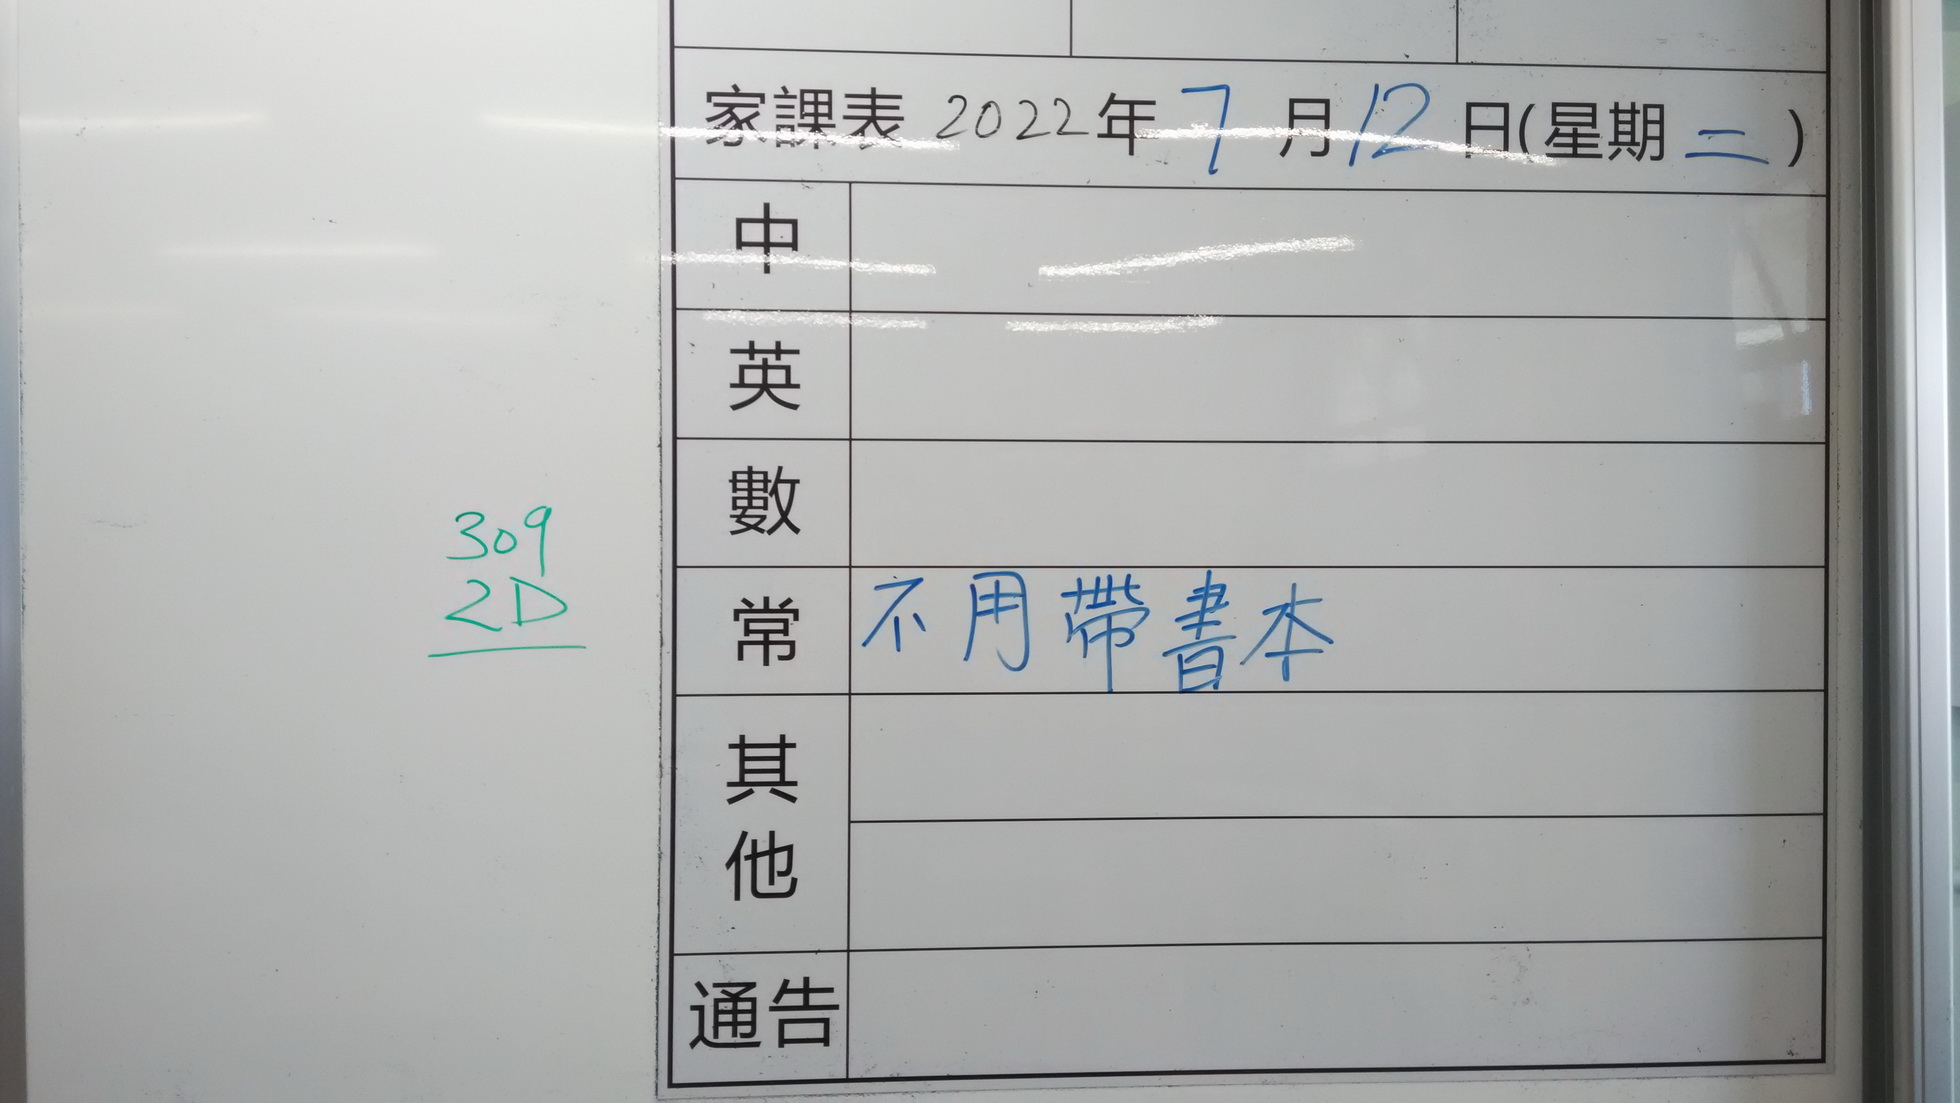 家課表 2022年7月12日(星期二)
中
英
數
常 不用帶書本
其他
通告
309
2D